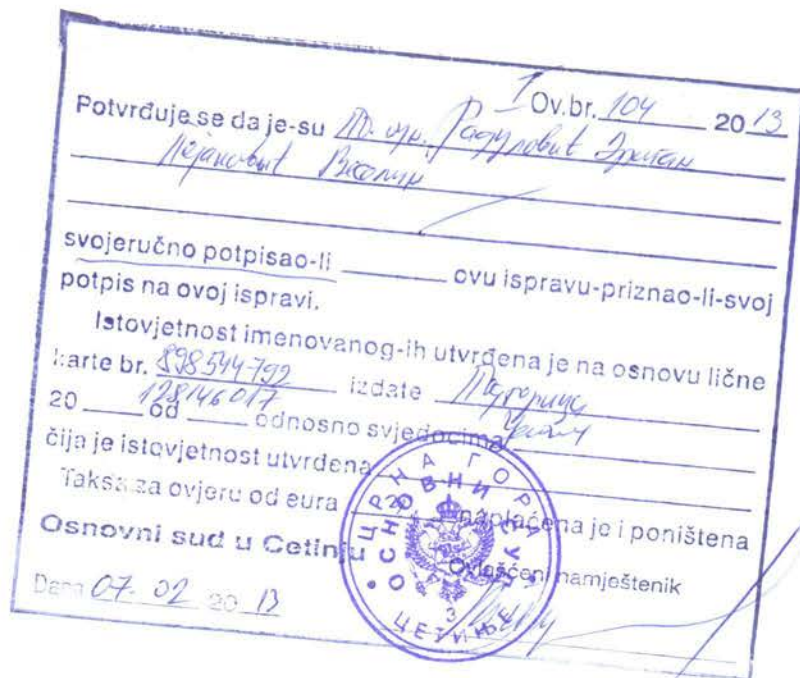 I Ov.br. 104 2013
Potvrđuje se da je-su Радуловић Драган
Пејановић Веселин
svojeručno potpisao-li ovu ispravu-priznao-li-svoj
potpis na ovoj ispravi.
Istovjetnost imenovanog-ih utvrđena je na osnovu lične
karte br. 898544792 izdate Подгорица
128146017
20 od odnosno svjedocima
čija je istovjetnost utvrđena
Taksa za ovjeru od eura naplaćena je i poništena
Osnovni sud u Cetinju
Ovlašćeni namještenik
Dana 07. 02 2013
ЦРНА ГОРА
ОСНОВНИ СУД
3
ЦЕТИЊЕ